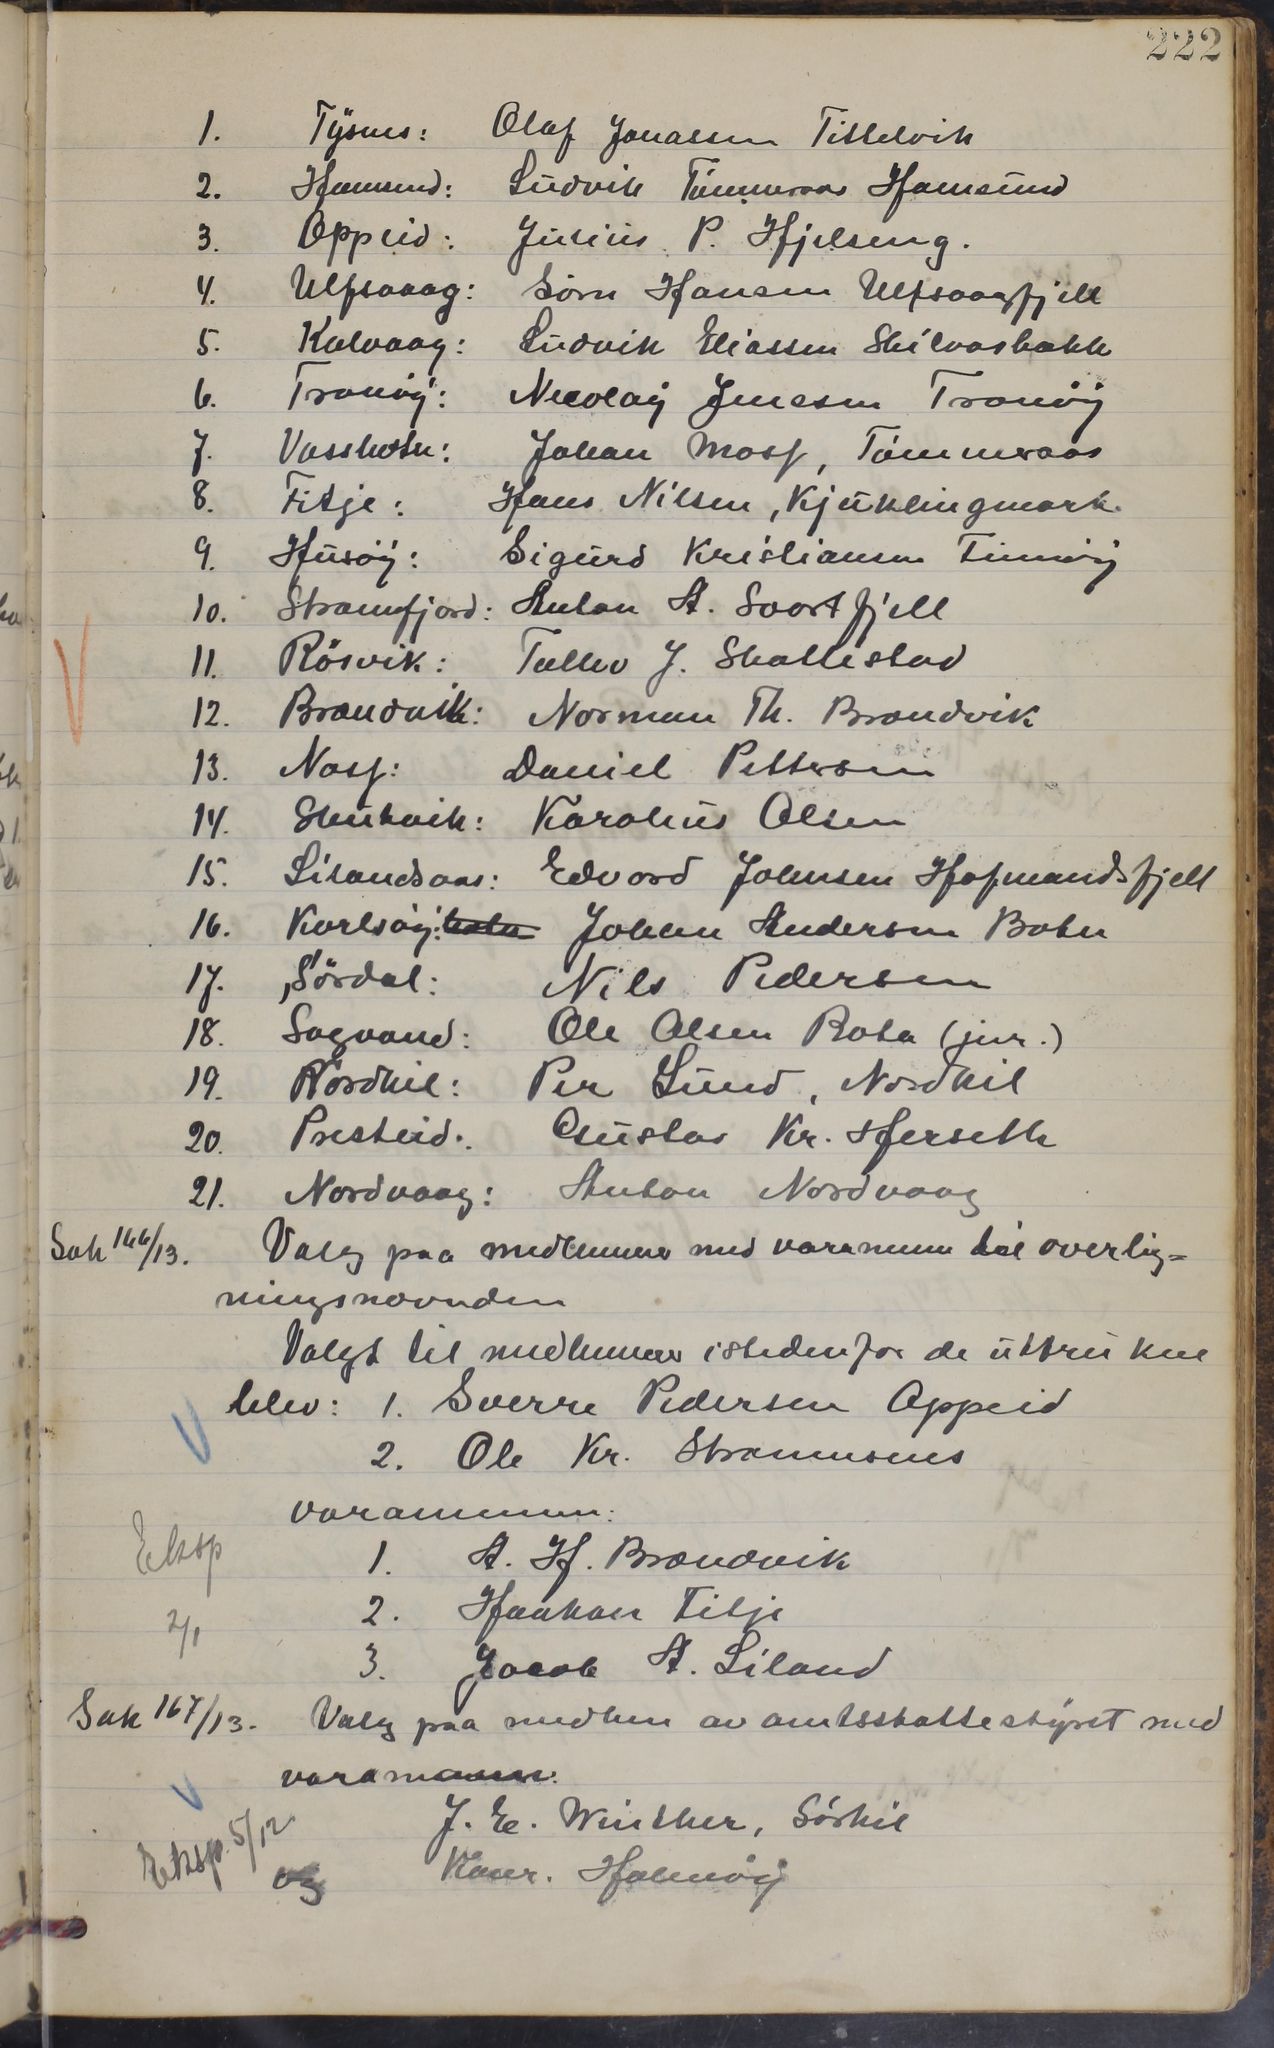 222
1. Tysnes: Olaf Jonassen Tittelvik
2. Hamsund: Ludvik Tömmeraas Hamsund
3. Oppeid: Julius P. Hjelseng.
4. Ulfsvaag: Sörn Hansen Ulfsvaagfjell
5. Kalvaag: Ludvik Eliassen Skilvasbakk
6. Tranöy: Nicolay Jensen Tranöy
7. Vassbotn: Johan Mosf, Tömmeraas
8. Fitje: Hans Nilsen, Kjüklingmark.
9. Husöy: Sigurd Kristiansen Finnöy
10. Straumfjord: Anton A. Svartfjell
11. Rösvik: Tollev J. Skallestad
12. Brandvik: Norman Th. Brandvik
13. Nasf: Daniel Pettersen
14. Skutvik: Karolius Olsen
15. Lilandsaas: Edvard Johnsen Hafmandsfjell
16. Karlsöy: Johan Andersen Botn
17. Sördal: Nils Pedersen
18. Sagvand: Ole Olsen Bota (jun.)
19. Nordkil: Per Lund, Nordkil
20. Presteid. Gustav Kr. Herseth
21. Nordvaag: Anton Nordvaag
Sak 166/13. Valg paa medlemmer med varamenn til overlig=
ningsnævnden
Valgt til medlemmer istedenfor de uttrukne
blev: 1. Sverre Pedersen Oppeid
2. Ole Kr. Straumsnes
varamenn:
Eksp 1. A. H. Brandvik
2/1 2. Haakon Fitje
3. Jacob A. Liland
Sak 167/13. Valg paa medlem av amtsskattestyret med
varamann.
J. E. Winther, Sörkil
Eksp. 5/12 og Konr. Holmöy